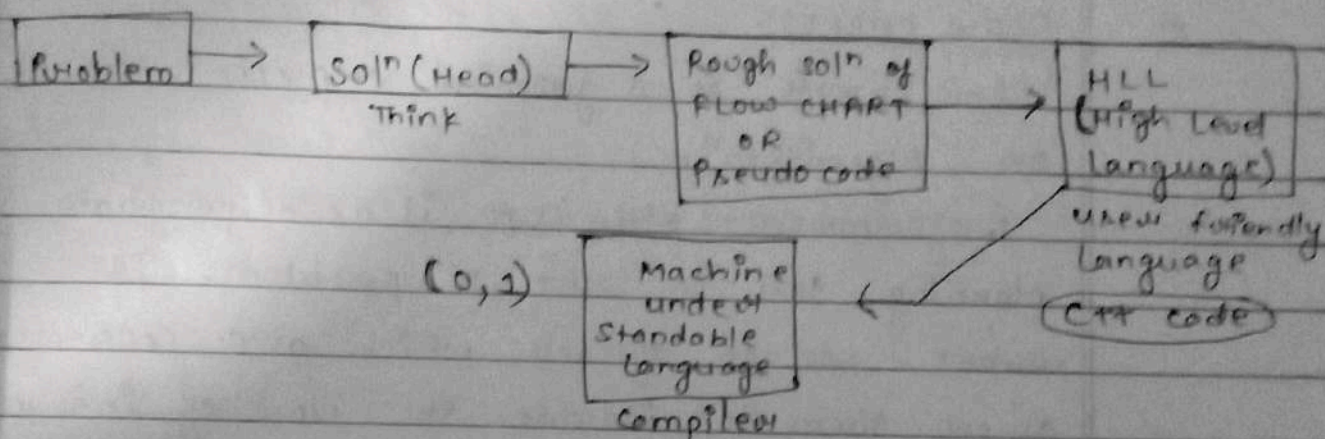 Problem
Solⁿ (Head)
Think
Rough solⁿ of
FLOW CHART
OR
Pseudo code
HLL
(High Level
Language)
user friendly
Language
C++ code
(0,1)
Machine
under
standable
Language
Compiler